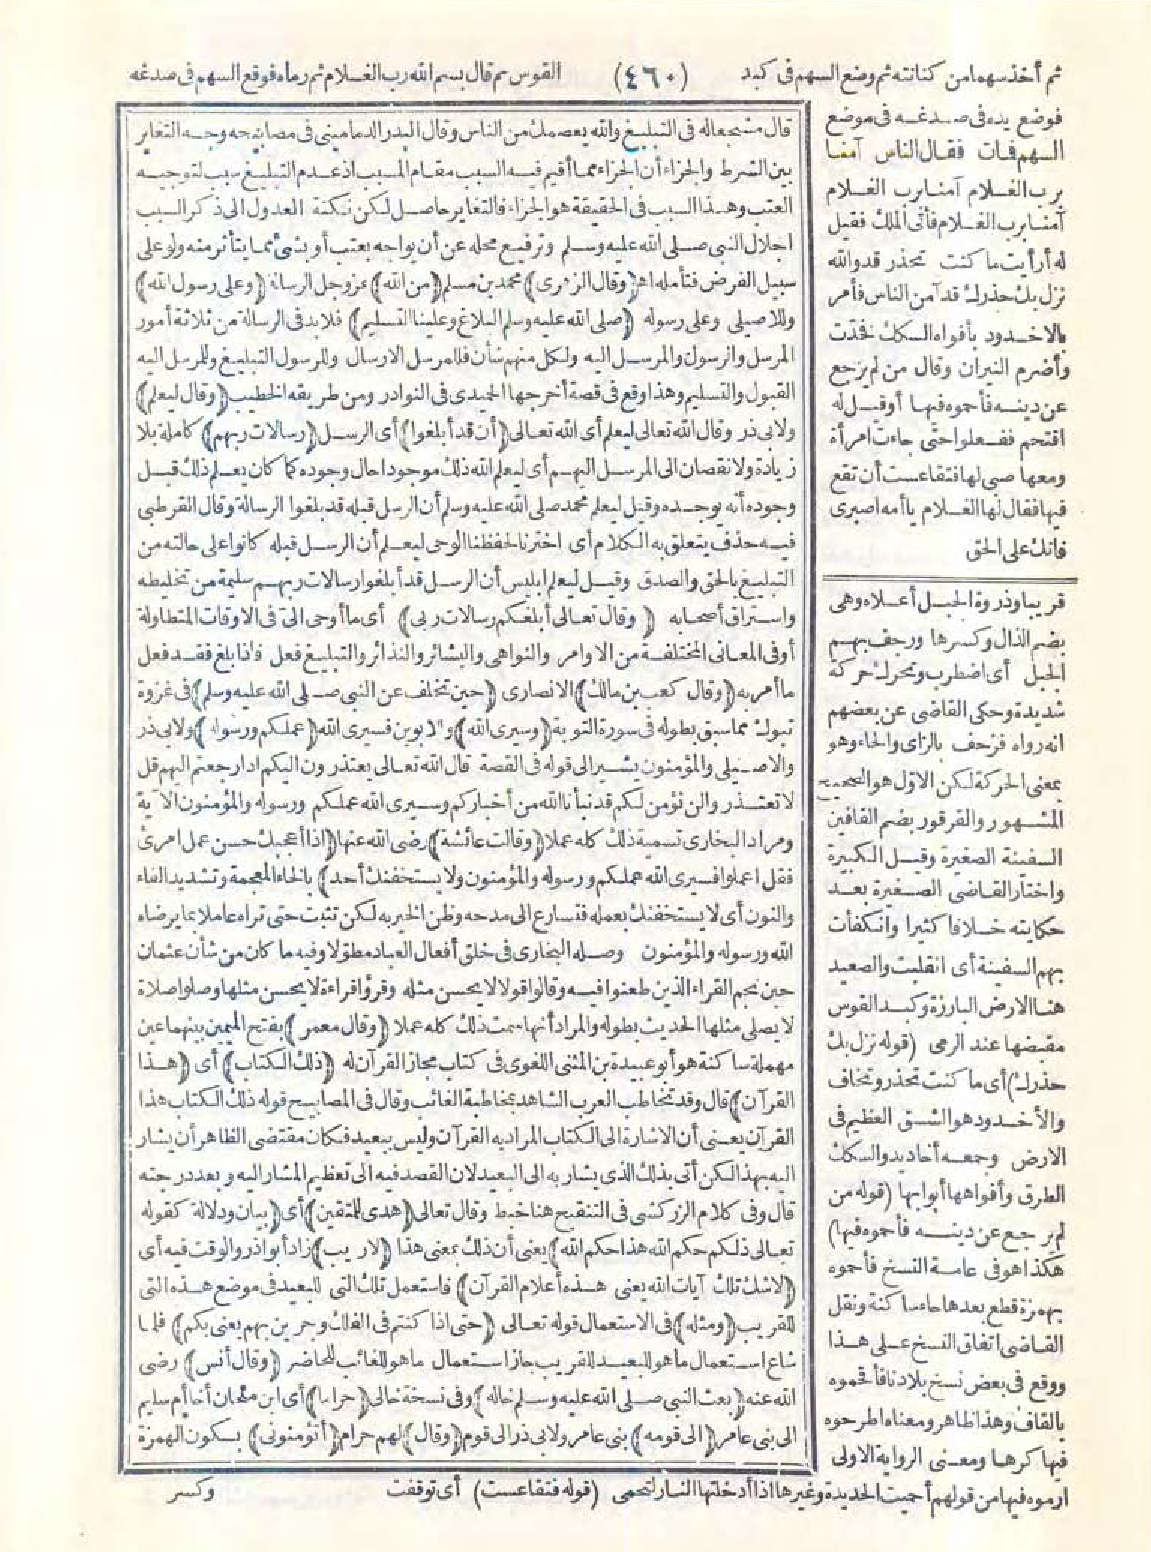 ثم أخذ سهما من كنانته ثم وضع السهم فى كبد (٤٦٠) القوس ثم قال بسم الله رب الغلام ثم رماه فوقع السهم فى صدغه
فوضع يده فى صدغه فى موضع
السهم فمات فقال الناس آمنا
برب الغلام آمنا برب الغلام
آمنا برب الغلام فأتى الملك فقيل
له أرأيت ما كنت تحذر قد والله
نزل بك حذرك قد آمن الناس فأمر
بالاخدود بأفواه السكك فخدت
وأضرم النيران وقال من لم يرجع
عن دينه فأحموه فيها أوقيل له
اقتحم ففعلوا حتى جاءت امرأة
ومعها صبى لها فتقاعست أن تقع
فيها فقال لها الغلام يا أمه اصبرى
فانك على الحق
قريبا وذروة الجبل أعلاه وهى
بضم الذال وكسرها ورجف بهم
الجبل أى اضطرب وتحرك حركة
شديدة وحكى القاضى عن بعضهم
انه رواه فزحف بالزاى والحاء وهو
بمعنى الحركة لكن الاول هو الصحيح
المشهور والقرقور بضم القافين
السفينة الصغيرة وقيل الكبيرة
واختار القاضى الصغيرة بعد
حكايته خلافا كثيرا وانكفأت
بهم السفينة أى انقلبت والصعيد
هنا الارض البارزة وكبد القوس
مقبضها عند الرمى (قوله نزل بك
حذرك) أى ما كنت تحذر وتخاف
والأخدود هو الشق العظيم فى
الارض وجمعه أخاديد والسكك
الطرق وأفواهها أبوابها (قوله من
لم يرجع عن دينه فأحموه فيها)
هكذا هو فى عامة النسخ فأحموه
بهمزة قطع بعدها حاء ساكنة ونقل
القاضى اتفاق النسخ على هذا
ووقع فى بعض نسخ بلادنا فأقحموه
بالقاف وهذا ظاهر ومعناه اطرحوه
فيها كرها ومعنى الرواية الاولى
ارموه فيها من قولهم أحميت الحديدة وغيرها اذا أدخلتها النار لتحمى (قوله فتقاعست) أى توقفت وكسر
قال متسجعا له فى التبليغ والله يعصمك من الناس وقال البدر الدمامينى فى مصابيحه وجه التغاير
بين الشرط والجزاء أن الجزاء مما أقيم فيه السبب مقام المسبب اذ عدم التبليغ سبب لتوجيه
العتب وهذا السبب فى الحقيقة هو الجزاء فالتغاير حاصل لكن نكتة العدول الى ذكر السبب
اجلال النبى صلى الله عليه وسلم وترفيع محله عن أن يواجه بعتب أو بشئ مما يتأثر منه ولو على
سبيل الفرض فتأمله اه (وقال الزهرى) محمد بن مسلم (من الله) عز وجل الرسالة (وعلى رسول الله)
وللاصيلى وعلى رسوله (صلى الله عليه وسلم البلاغ وعلينا التسليم) فلا بد فى الرسالة من ثلاثة أمور
المرسل والرسول والمرسل اليه ولكل منهم شأن فللمرسل الارسال وللرسول التبليغ وللمرسل اليه
القبول والتسليم وهذا وقع فى قصة أخرجها الحميدى فى النوادر ومن طريقه الخطيب (وقال ليعلم)
ولابى ذر وقال الله تعالى ليعلم أى الله تعالى (أن قد أبلغوا) أى الرسل (رسالات ربهم) كاملة بلا
زيادة ولا نقصان الى المرسل اليهم أى ليعلم الله ذلك موجودا حال وجوده كما كان يعلم ذلك قبل
وجوده أنه يوجده وقيل ليعلم محمد صلى الله عليه وسلم أن الرسل قبله قد بلغوا الرسالة وقال القرطبى
فيه حذف يتعلق به الكلام أى اخترنا لحفظنا الوحى ليعلم أن الرسل قبله كانوا على حالته من
التبليغ بالحق والصدق وقيل ليعلم ابليس أن الرسل قد أبلغوا رسالات ربهم سليمة من تخليطه
واستراق أصحابه (وقال تعالى أبلغكم رسالات ربى) أى ما أوحى الى فى الاوقات المتطاولة
أو فى المعانى المختلفة من الاوامر والنواهى والبشائر والنذائر والتبليغ فعل فاذا بلغ فقد فعل
ما أمر به (وقال كعب بن مالك) الانصارى (حين تخلف عن النبى صلى الله عليه وسلم) فى غزوة
تبوك مما سبق بطوله فى سورة التوبة (وسيرى الله) ولابوين فسيرى الله (عملكم ورسوله) ولابى ذر
والاصيلى والمؤمنون يشير الى قوله فى القصة قال الله تعالى يعتذرون اليكم اذا رجعتم اليهم قل
لا تعتذروا لن نؤمن لكم قد نبأنا الله من أخباركم وسيرى الله عملكم ورسوله والمؤمنون الآية
ومراد البخارى تسمية ذلك كله عملا (وقالت عائشة) رضى الله عنها (اذا أعجبك حسن عمل امرئ
فقل اعملوا فسيرى الله عملكم ورسوله والمؤمنون ولا يستخفنك أحد) بالخاء المعجمة وتشديد الفاء
والنون أى لا يستخفنك بعمله فتسارع الى مدحه وظن الخير به لكن تثبت حتى تراه عاملا بما يرضاه
الله ورسوله والمؤمنون وصله البخارى فى خلق أفعال العباد مطولا وفيه ما كان من شأن عثمان
حين نجم القراء الذين طعنوا فيه وقالوا قولا لا يحسن مثله وقرؤا قراءة لا يحسن مثلها وصلوا صلاة
لا يصلى مثلها الحديث بطوله والمراد أنها سمت ذلك كله عملا (وقال معمر) بفتح الميمين بينهما عين
مهملة ساكنة هو أبو عبيدة بن المثنى اللغوى فى كتاب مجاز القرآن له (ذلك الكتاب) أى (هذا
القرآن) قال وقد تخاطب العرب الشاهد بمخاطبة الغائب وقال فى المصابيح قوله ذلك الكتاب هذا
القرآن يعنى أن الاشارة الى الكتاب المراد به القرآن وليس ببعيد فكان مقتضى الظاهر أن يشار
اليه بهذا لكن أتى بذلك الذى يشار به الى البعيد لان القصد فيه الى تعظيم المشار اليه وبعد درجته
قال وفى كلام الزركشى فى التنقيح هنا خبط وقال تعالى (هدى للمتقين) أى (بيان ودلالة كقوله
تعالى ذلكم حكم الله هذا حكم الله) يعنى أن ذلك بمعنى هذا (لا ريب) زاد أبوا ذر والوقت فيه أى
(لا شك تلك آيات الله يعنى هذه أعلام القرآن) فاستعمل تلك التى للبعيد فى موضع هذه التى
للقريب (ومثله) فى الاستعمال قوله تعالى (حتى اذا كنتم فى الفلك وجرين بهم يعنى بكم) فلما
شاع استعمال ما هو للبعيد للقريب جاز استعمال ما هو للغائب للحاضر (وقال أنس) رضى
الله عنه (بعث النبى صلى الله عليه وسلم خاله) وفى نسخة خالى (حراما) أى ابن ملحان أخا أم سليم
الى بنى عامر (الى قومه) بنى عامر ولابى ذر الى قوم (وقال) لهم حرام (أتؤمنونى) بسكون الهمزة